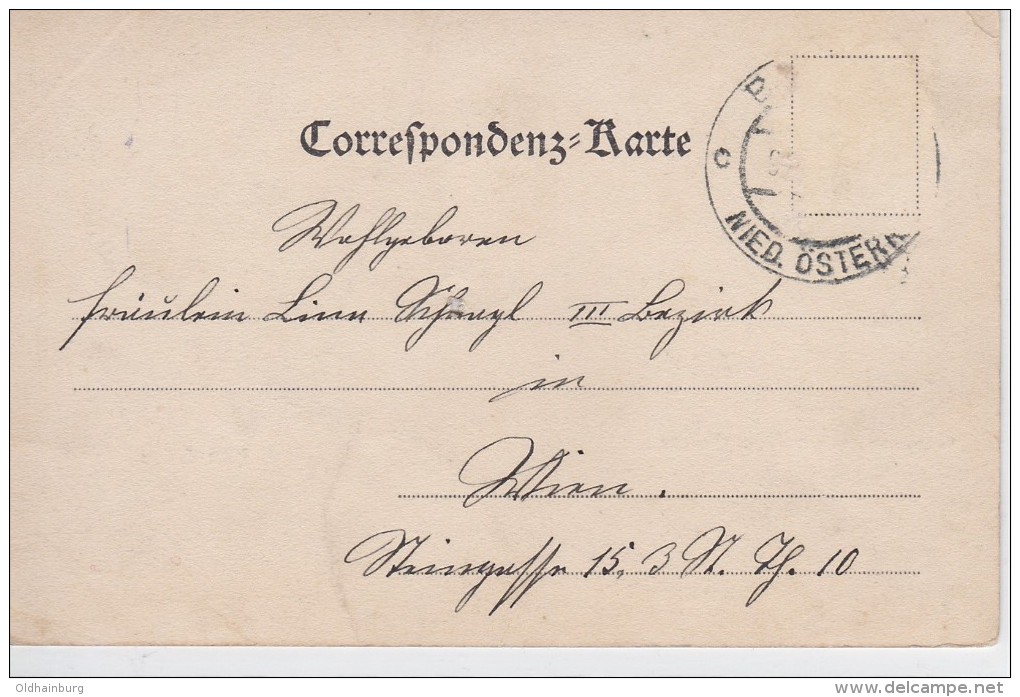 Correſpondenz-Karte
NIED. ÖSTERR
Wohlgeboren
Fräulein Lina III Bezirk
in
Wien.
Steingasse 15, 3 St. Th. 10
Oldhainburg
delcampe.net